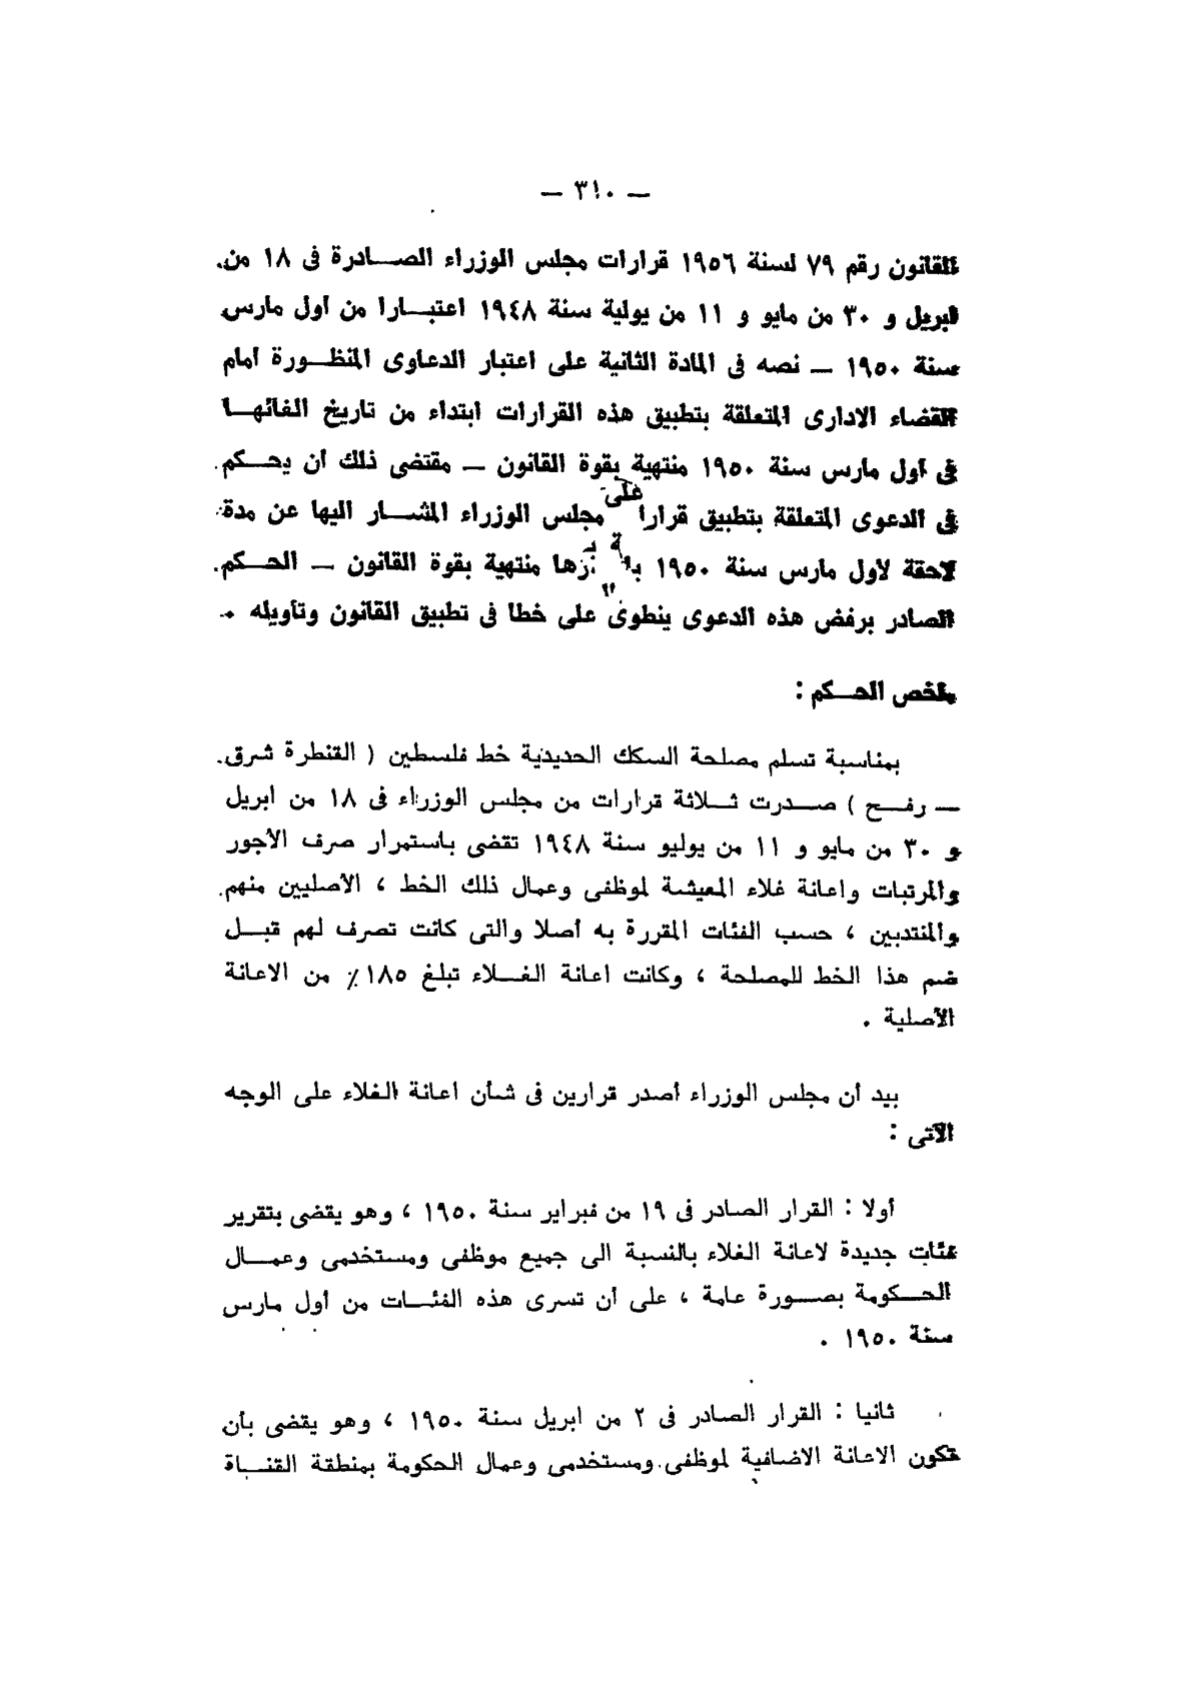 — ٣١٠ —
القانون رقم ٧٩ لسنة ١٩٥٦ قرارات مجلس الوزراء الصادرة فى ١٨ من
ابريل و ٣٠ من مايو و ١١ من يولية سنة ١٩٤٨ اعتبارا من أول مارس
سنة ١٩٥٠ — نصه فى المادة الثانية على اعتبار الدعاوى المنظورة امام
القضاء الادارى المتعلقة بتطبيق هذه القرارات ابتداء من تاريخ الغائها
فى أول مارس سنة ١٩٥٠ منتهية بقوة القانون — مقتضى ذلك أن يحكم
فى الدعوى المتعلقة بتطبيق مجلس الوزراء المشار اليها عن مدة
لاحقة لأول مارس سنة ١٩٥٠ منتهية بقوة القانون — الحكم
الصادر برفض هذه الدعوى ينطوى على خطا فى تطبيق القانون وتأويله .
ملخص الحكم :
بمناسبة تسلم مصلحة السكك الحديدية خط فلسطين ( القنطرة شرق
— رفح ) صدرت ثلاثة قرارات من مجلس الوزراء فى ١٨ من ابريل
و ٣٠ من مايو و ١١ من يوليو سنة ١٩٤٨ تقضى باستمرار صرف الأجور
والمرتبات واعانة غلاء المعيشة لموظفى وعمال ذلك الخط ، الأصليين منهم
والمنتدبين ، حسب الفئات المقررة به أصلا والتى كانت تصرف لهم قبل
ضم هذا الخط للمصلحة ، وكانت اعانة الغلاء تبلغ ١٨٥٪ من الاعانة
الأصلية .
بيد أن مجلس الوزراء أصدر قرارين فى شأن اعانة الغلاء على الوجه
الآتى :
أولا : القرار الصادر فى ١٩ من فبراير سنة ١٩٥٠ ، وهو يقضى بتقرير
فئات جديدة لاعانة الغلاء بالنسبة الى جميع موظفى ومستخدمى وعمال
الحكومة بصورة عامة ، على أن تسرى هذه الفئات من أول مارس
سنة ١٩٥٠ .
ثانيا : القرار الصادر فى ٢ من ابريل سنة ١٩٥٠ ، وهو يقضى بأن
تكون الاعانة الاضافية لموظفى ومستخدمى وعمال الحكومة بمنطقة القناة